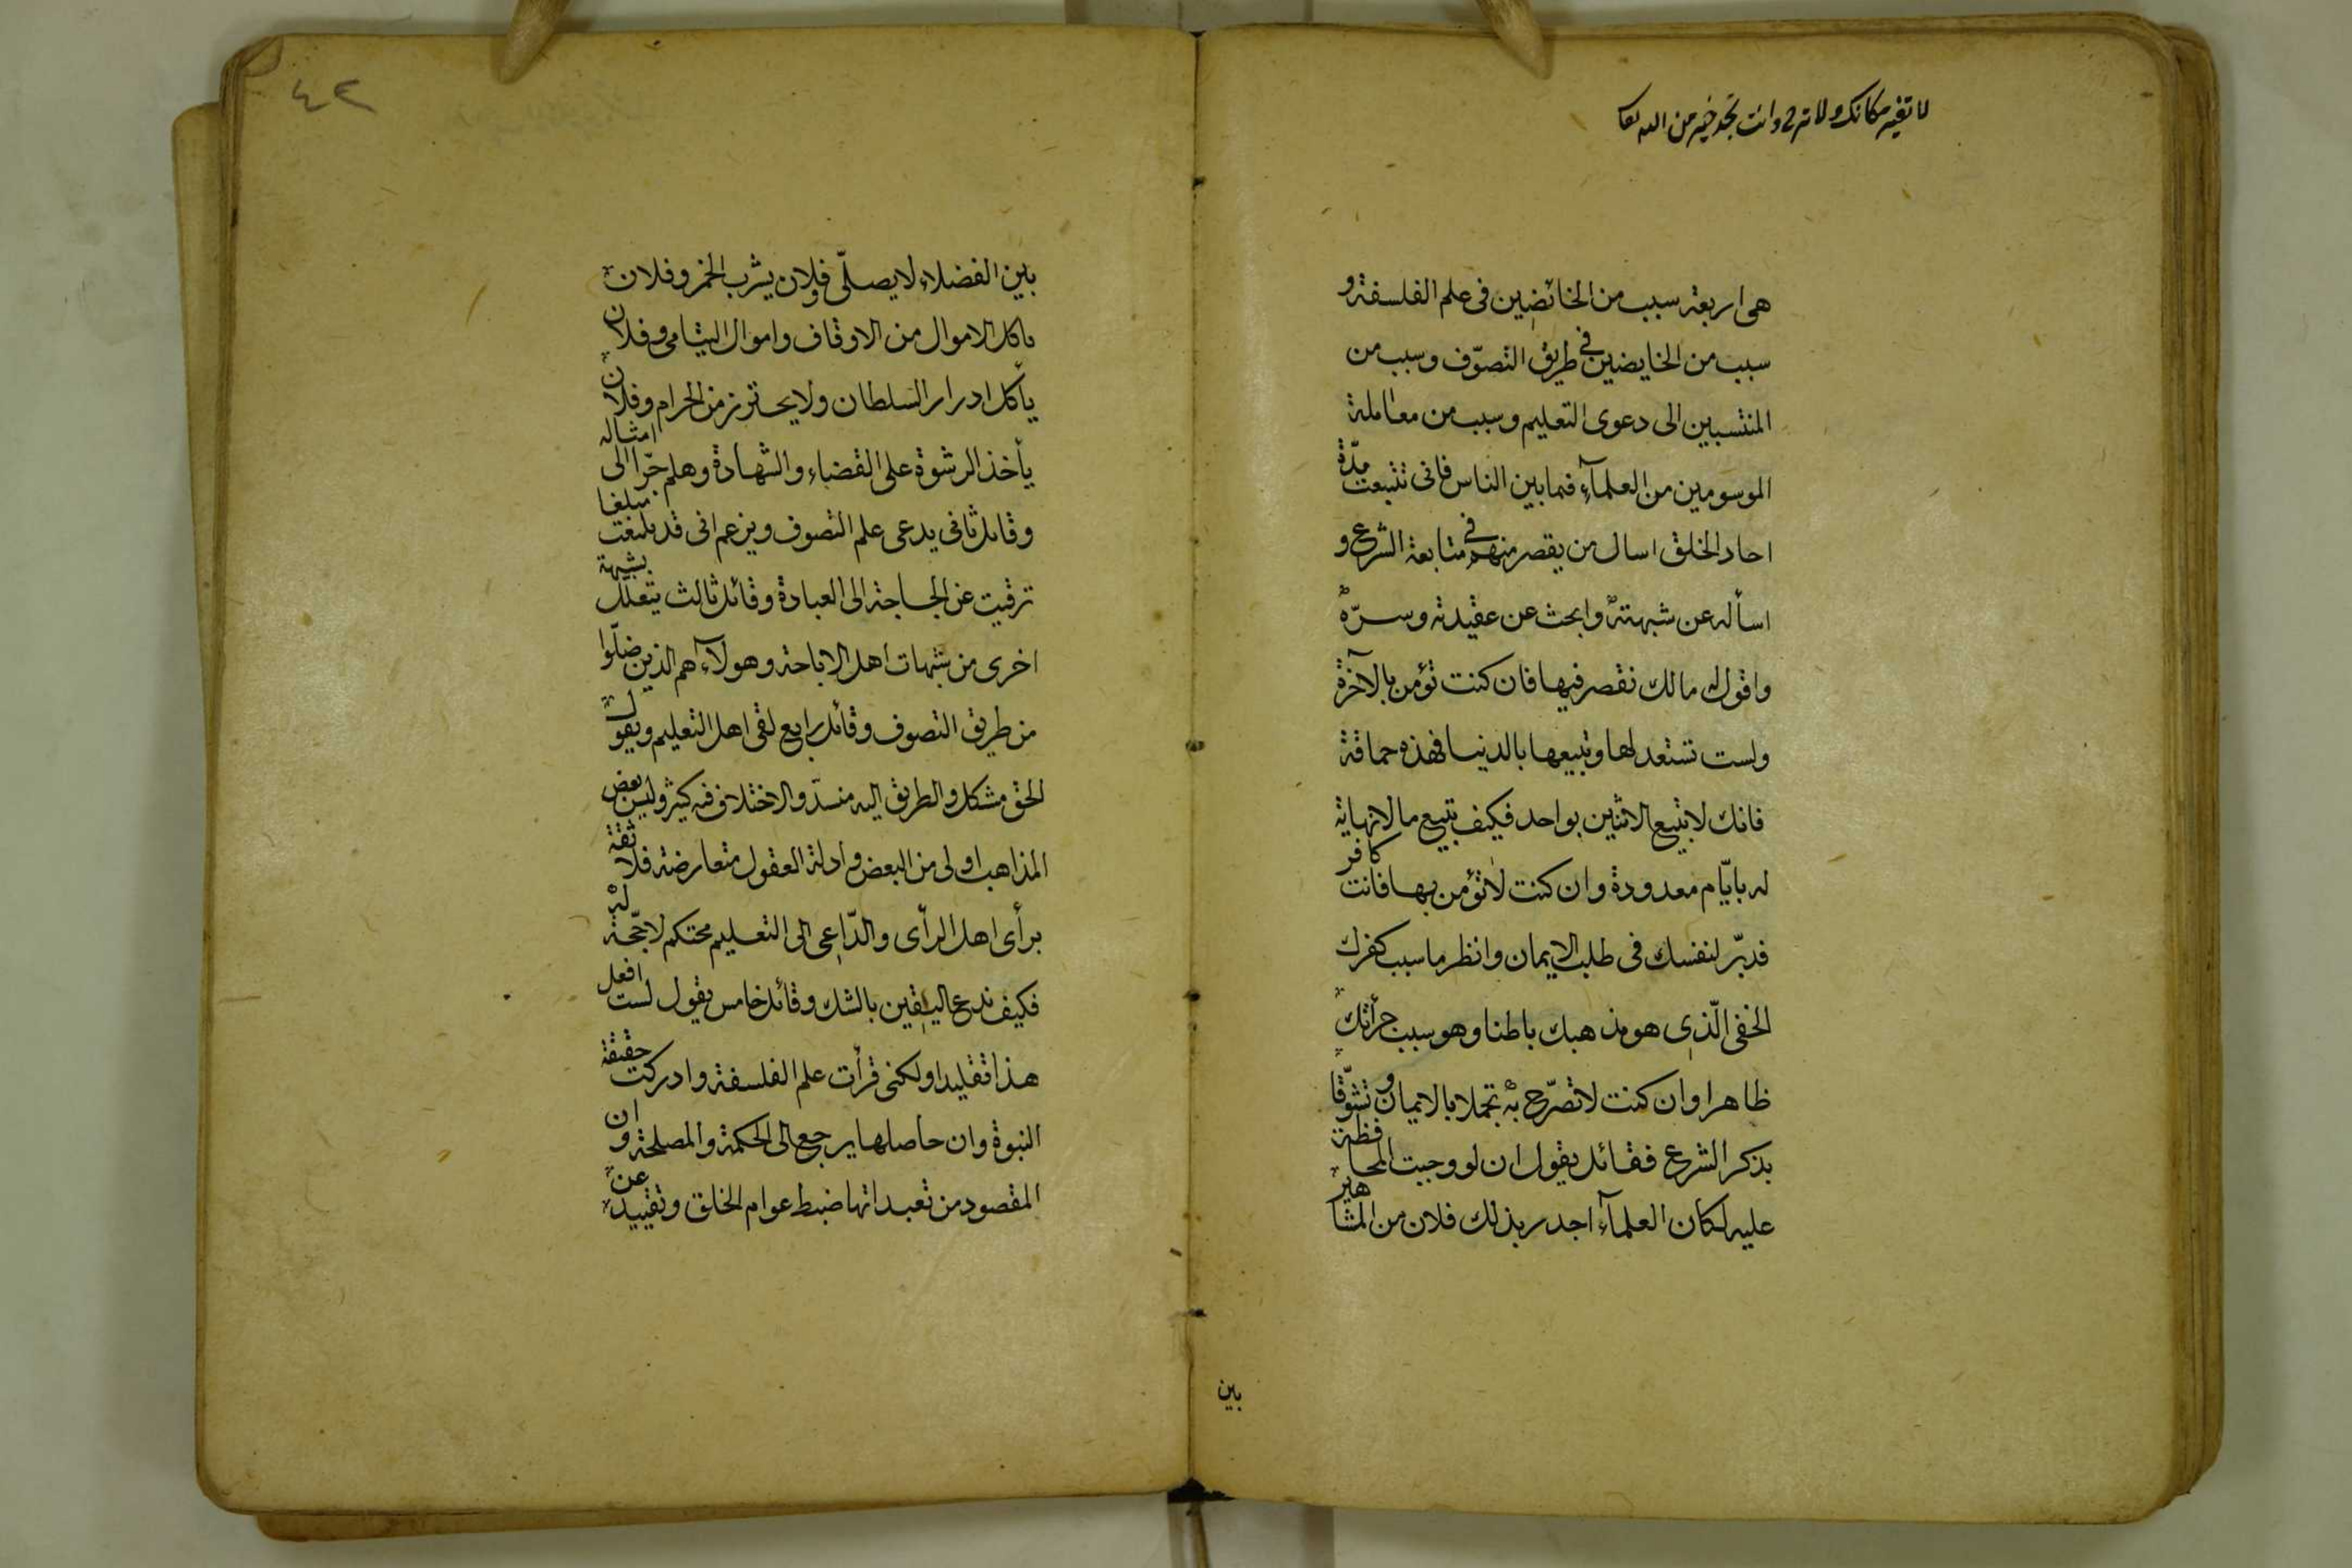 لا تغير مكانك ولا تر وانت تجد خير من الله تعا
هى اربعة سبب من الخائضين فى علم الفلسفة و
سبب من الخايضين فى طريق التصوّف وسبب من
المنتسبين الى دعوى التعليم وسبب من معاملة
الموسومين من العلمآء فيما بين الناس فانى تتبعت مدّة
احاد الخلق اسال من يقصر منهم فى متابعة الشرع و
اسأله عن شبهته وابحث عن عقيدته وسرّه
واقول له مالك تقصر فيها فان كنت تؤمن بالآخرة
ولست تستعد لها وتبيعها بالدنيا فهذه حماقة
فانك لا تبيع الاثنين بواحد فكيف تبيع ما لا نهاية
له بايّام معدودة وان كنت لا تؤمن بها فانت كافر
فدبّر لنفسك فى طلب الايمان وانظر ما سبب كفرك
الخفى الّذى هو مذهبك باطنا وهو سبب جرأتك
ظاهرا وان كنت لا تصرّح به تجملا بالايمان و تشوّقا
بذكر الشرع فقائل يقول ان لو وجبت المحافظة
عليه لكان العلمآء اجدر بذلك فلان من المشاهير
بين
٤٢
بين الفضلاء لا يصلّى وفلان يشرب الخمر وفلان
ياكل الاموال من الاوقاف واموال اليتامى وفلان
يأكل ادرار السلطان ولا يحترز من الحرام وفلان
يأخذ الرشوة على القضاء والشهادة وهلم جرّا الى امثاله
وقائل ثانى يدعى علم التصوف ويزعم انى قد بلغت مبلغا
ترقيت عن الحاجة الى العبادة وقائل ثالث يتعلّل بشبهة
اخرى من شبهات اهل الاباحة وهولآء هم الذين ضلّوا
من طريق التصوف وقائل رابع لقى اهل التعليم ويقول
الحق مشكل والطريق اليه منسدّ والاختلاف فيه كثير وليس بعض
المذاهب اولى من البعض وادلة العقول متعارضة فلا ثقة
برأى اهل الرأى والدّاعى الى التعليم محتكم لا حجّة له
فكيف ندع اليقين بالشك وقائل خامس يقول لست افعل
هذا تقليدا ولكنى قرأت علم الفلسفة وادركت حقيقة
النبوة وان حاصلها يرجع الى الحكمة والمصلحة وان
المقصود من تعبداتها ضبط عوام الخلق وتقييد عن